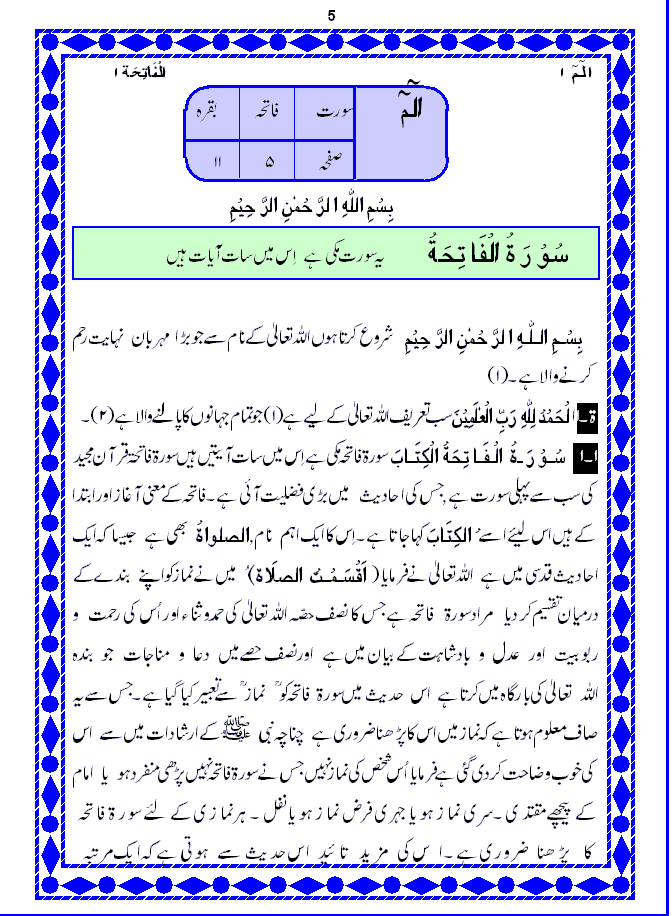 5
الٓمّٓ ۱ الْفَاتِحَة ۱
الٓمّٓ سورت فاتحہ بقرہ
صفحہ ۵ ۱۱
بِسْمِ اللّٰهِ الرَّحْمٰنِ الرَّحِيْمِ
سُوْرَةُ الْفَاتِحَةُ یہ سورت مکی ہے اِس میں سات آیات ہیں
بِسْمِ اللّٰهِ الرَّحْمٰنِ الرَّحِيْمِ شروع کرتا ہوں اللہ تعالیٰ کے نام سے جو بڑا مہربان نہایت رحم
کرنے والا ہے۔(۱)
ق۔ اَلْحَمْدُ لِلّٰهِ رَبِّ الْعٰلَمِيْنَ سب تعریف اللہ تعالیٰ کے لیے ہے(۱) جو تمام جہانوں کا پالنے والا ہے(۲)۔
ا۔ا سُوْرَةُ الْفَاتِحَةُ الْكِتَابَ سورۃ فاتحہ مکی ہے اِس میں سات آیتیں ہیں سورۃ فاتحہ قرآن مجید
کی سب سے پہلی سورت ہے, جس کی احادیث میں بڑی فضلیت آئی ہے۔ فاتحہ کے معنی آغاز اور ابتدا
کے ہیں اس لیئے اسے الْكِتَابَ کہا جاتا ہے۔ اِس کا ایک اہم نام, الصلواةُ بھی ہے جیسا کہ ایک
احادیث قدسی میں ہے اللہ تعالیٰ نے فرمایا ( اَقْسَمْتُ الصلَاةَ )ُ میں نے نماز کو اپنے بندے کے
درمیان تقسیم کر دیا مراد سورۃ فاتحہ ہے جس کا نصف حصّہ اللہ تعالیٰ کی حمد و ثناء اور اُس کی رحمت و
ربوبیت اور عدل و بادشاہت کے بیان میں ہے اور نصف حصے میں دعا و مناجات جو بندہ
اللہ تعالیٰ کی بارگاہ میں کرتا ہے اس حدیث میں سورۃ فاتحہ کو ” نماز ” سے تعبیر کیا گیا ہے۔ جس سے یہ
صاف معلوم ہوتا ہے کہ نماز میں اس کا پڑھنا ضروری ہے چناچہ نبی ﷺ کے ارشادات میں سے اس
کی خوب وضاحت کردی گئی ہے فرمایا اُس شخص کی نماز نہیں جس نے سورۃ فاتحہ نہیں پڑھی منفرد ہو یا امام
کے پیچھے مقتدی۔ سری نماز ہو یا جہری فرض نماز ہو یا نفل ۔ ہر نمازی کے لئے سورۃ فاتحہ
کا پڑھنا ضروری ہے۔ اس کی مزید تائید اس حدیث سے ہوتی ہے کہ ایک مرتبہ